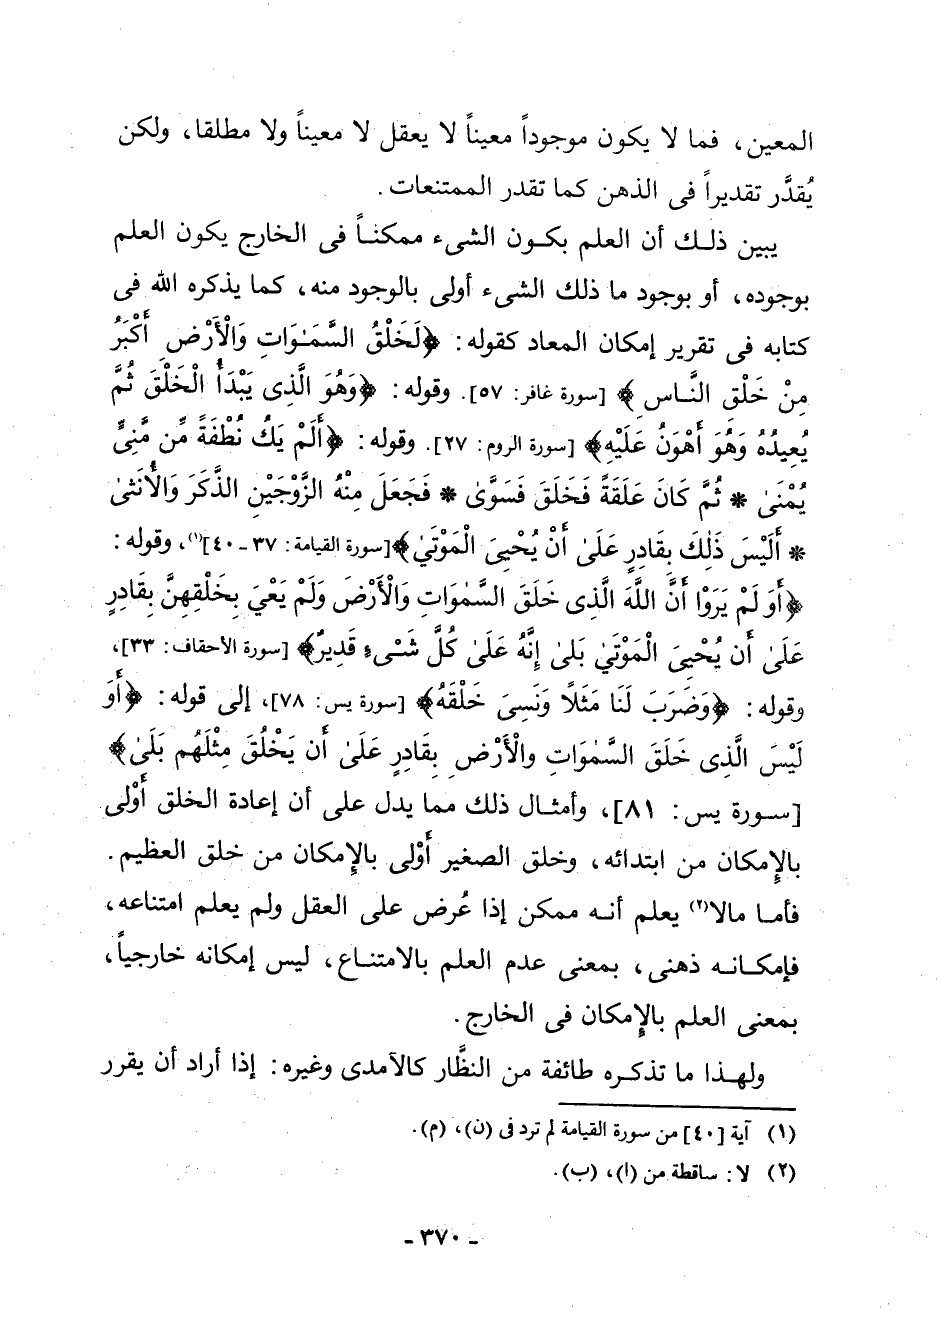 المعين، فما لا يكون موجوداً معيناً لا يعقل لا معيناً ولا مطلقا، ولكن
يُقدَّر تقديراً فى الذهن كما تقدر الممتنعات.
يبين ذلك أن العلم بكون الشىء ممكناً فى الخارج يكون العلم
بوجوده، أو بوجود ما ذلك الشىء أولى بالوجود منه، كما يذكره الله فى
كتابه فى تقرير إمكان المعاد كقوله: ﴿لَخَلْقُ السَّمَوَاتِ وَالْأَرْضِ أَكْبَرُ
مِنْ خَلْقِ النَّاسِ﴾ [سورة غافر: ٥٧]. وقوله: ﴿وَهُوَ الَّذِى يَبْدَأُ الْخَلْقَ ثُمَّ
يُعِيدُهُ وَهُوَ أَهْوَنُ عَلَيْهِ﴾ [سورة الروم: ٢٧]. وقوله: ﴿أَلَمْ يَكُ نُطْفَةً مِّن مَّنِىٍّ
يُمْنَىٰ * ثُمَّ كَانَ عَلَقَةً فَخَلَقَ فَسَوَّىٰ * فَجَعَلَ مِنْهُ الزَّوْجَيْنِ الذَّكَرَ وَالْأُنثَىٰ
* أَلَيْسَ ذَٰلِكَ بِقَادِرٍ عَلَىٰ أَنْ يُحْيِىَ الْمَوْتَىٰ﴾ [سورة القيامة: ٣٧ - ٤٠](١)، وقوله:
﴿أَوَ لَمْ يَرَوْا أَنَّ اللَّهَ الَّذِى خَلَقَ السَّمَٰوَاتِ وَالْأَرْضَ وَلَمْ يَعْىَ بِخَلْقِهِنَّ بِقَادِرٍ
عَلَىٰ أَن يُحْيِىَ الْمَوْتَىٰ بَلَىٰ إِنَّهُ عَلَىٰ كُلِّ شَىْءٍ قَدِيرٌ﴾ [سورة الأحقاف: ٣٣]،
وقوله: ﴿وَضَرَبَ لَنَا مَثَلًا وَنَسِىَ خَلْقَهُ﴾ [سورة يس: ٧٨]، إلى قوله: ﴿أَوَ
لَيْسَ الَّذِى خَلَقَ السَّمَٰوَاتِ والْأَرْضِ بِقَادِرٍ عَلَىٰ أَن يَخْلُقَ مِثْلَهُم بَلَىٰ﴾
[سورة يس: ٨١]، وأمثال ذلك مما يدل على أن إعادة الخلق أَوْلى
بالإِمكان من ابتدائه، وخلق الصغير أَوْلى بالإِمكان من خلق العظيم.
فأما مالا(٢) يعلم أنه ممكن إذا عُرض على العقل ولم يعلم امتناعه،
فإمكانه ذهنى، بمعنى عدم العلم بالامتناع، ليس إمكانه خارجياً،
بمعنى العلم بالإِمكان فى الخارج.
ولهذا ما تذكره طائفة من النظَّار كالآمدى وغيره: إذا أراد أن يقرر
(١) آية [٤٠] من سورة القيامة لم ترد فى (ن)، (م).
(٢) لا: ساقطة من (ا)، (ب).
- ٣٧٠ -